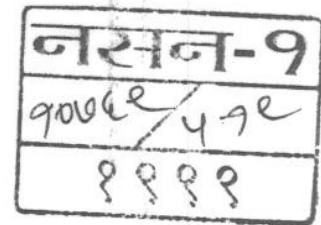 नसन-१
१०७८९/५१९
१९९९